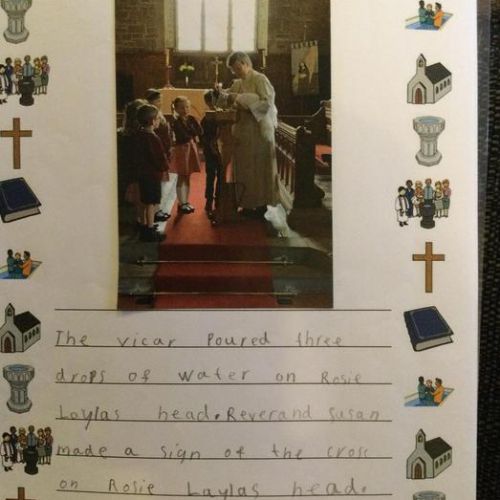 The vicar Poured three
drops of water on Rosie
Loylas head. Reverand Susan
made a sign of the cross
on Rosie Laylas head.